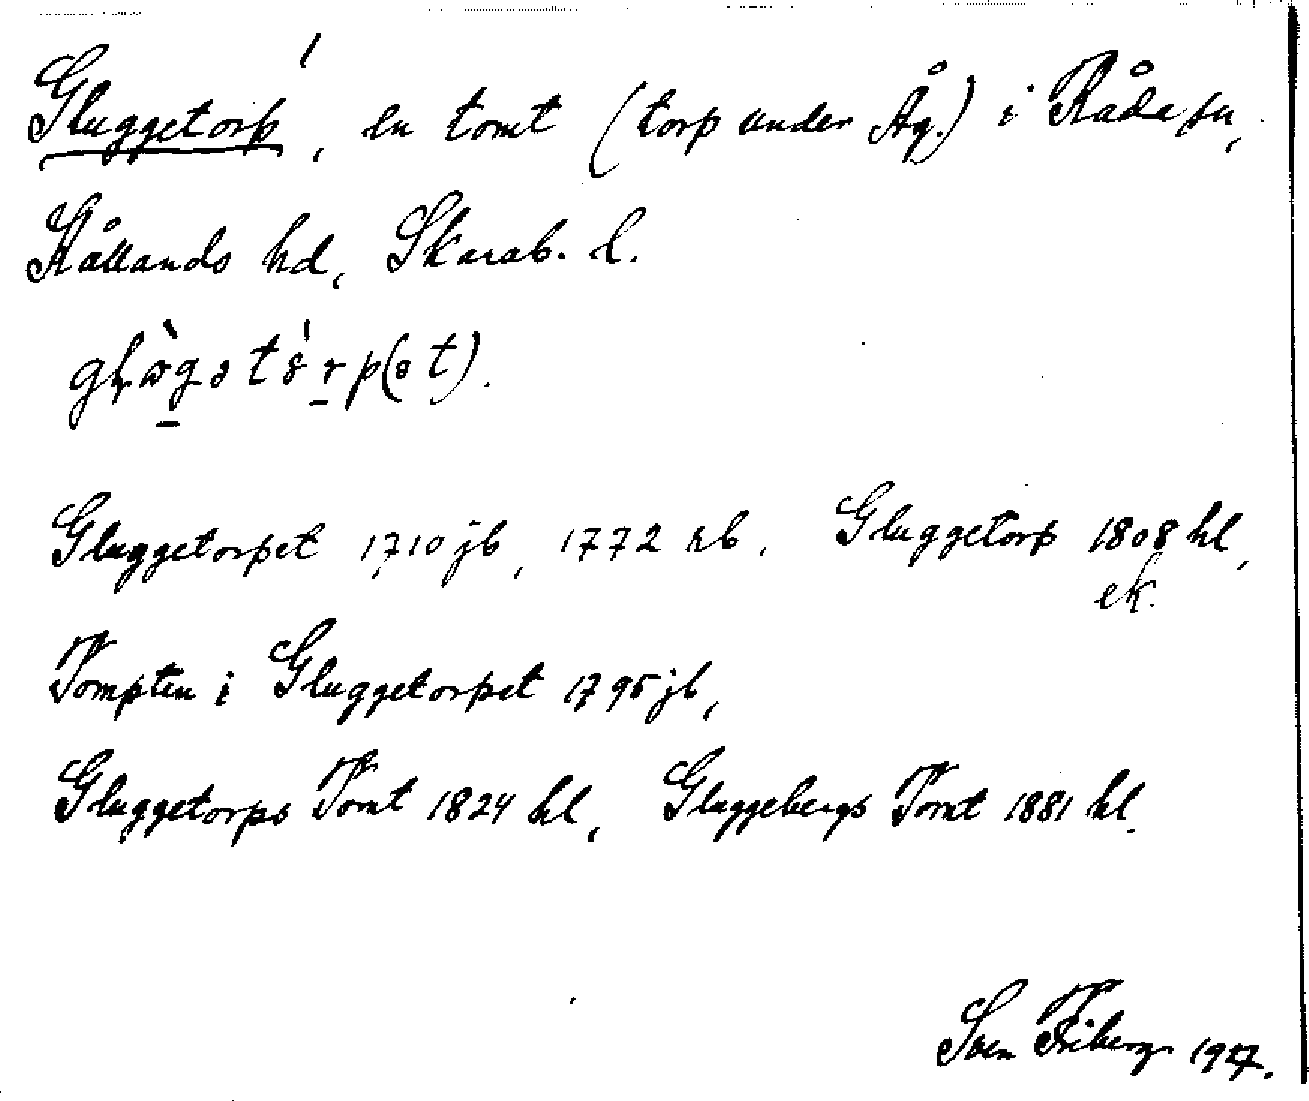 Gluggetorp, en tomt (torp under Åg.) i Råda sn,
Kållands hd, Skarab. l.
Gluggetorpet 1710 jb, 1772 hb. Gluggetorp 1808 hl,
ek.
Tompten i Gluggetorpet 1795 jb,
Gluggetorps Tomt 1824 hl, Gluggebergs Tomt 1881 hl.
Sven Friberg